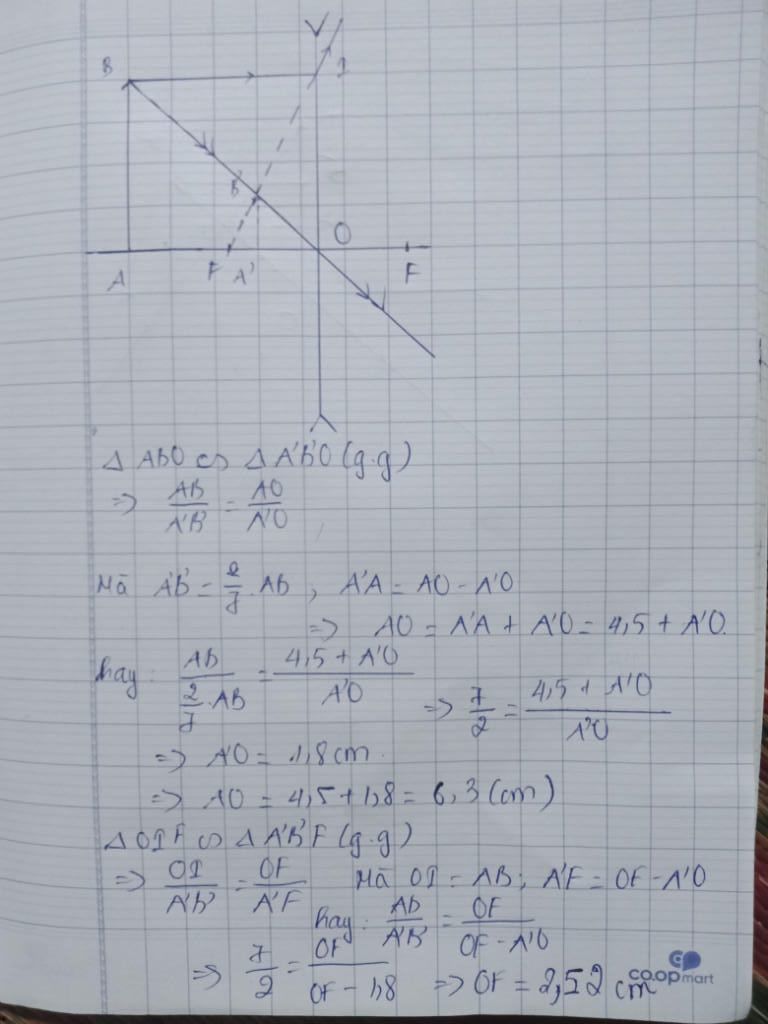 B I
B'
O
A F A' F
Δ ABO ∽ Δ A'B'O (g.g)
=> AB/A'B' = AO/A'O
Mà A'B' = 2/7 . AB , A'A = AO - A'O
=> AO = A'A + A'O = 4,5 + A'O.
hay : AB/(2/7 . AB) = (4,5 + A'O)/A'O => 7/2 = (4,5 + A'O)/A'O
=> A'O = 1,8 cm.
=> AO = 4,5 + 1,8 = 6,3 (cm)
Δ OIF ∽ Δ A'B'F (g.g)
=> OI/A'B' = OF/A'F Mà OI = AB ; A'F = OF - A'O
hay : AB/A'B' = OF/(OF - A'O)
=> 7/2 = OF/(OF - 1,8) => OF = 2,52 cm
co.opmart